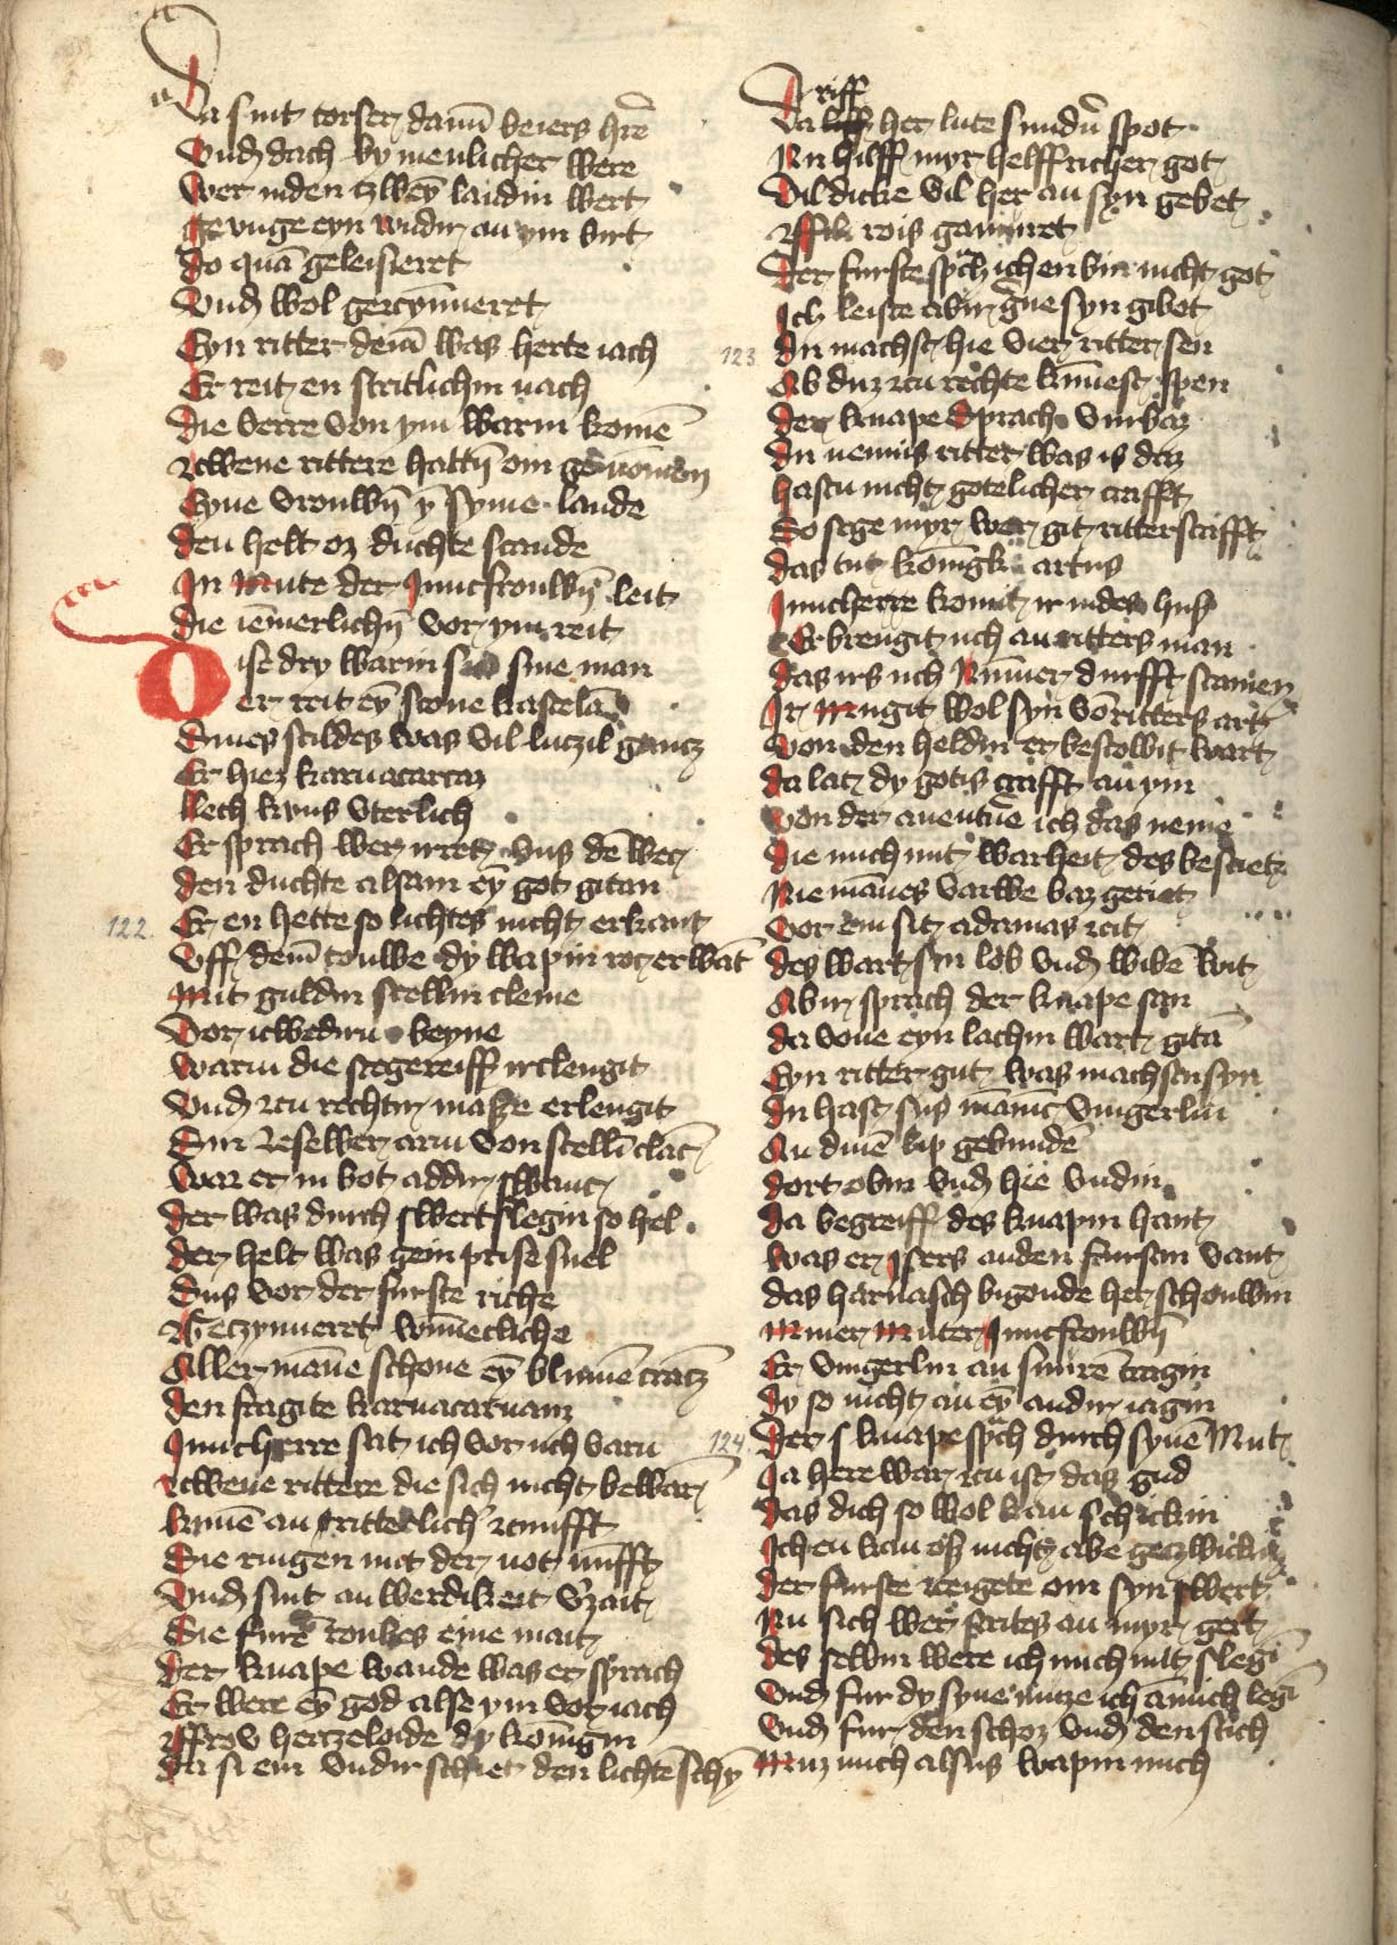 Da sint torscer danū beiers hrē
Vnd dach by menlicher were
Wer inden tzweȳ landin wert
Ge vuge eyn wūdir an ym birt
Do quā geleisieret
Vnd wol gerzymieret
Eyn ritter dem was herte iach
Er reit en stritlichin nach
Die verre von ym warin komē
Zcwene rittere hattē om genomen
Eyne vrouwē ȳ syme lande
Den helt oz duchte scande
In Mute der Juncfrouwē leit
Die iēmerlichē vor ym reit
Dise dry warin sine man
er reit eȳ scone kastelā
Dines scildes was vil lutzil gantz
Er hiez karnacarnaz
Lech kuns vterlich
Er sprach wer irret vns dē wec
Den duchte alsam eȳ got gitan
122. Er en hette so lichtes nicht erkant
Vff dem touwe dy wapin roc erwāt
Mit guldin scellin cleine
Vor iewedirm beyne
Warin die stegereiff irclengit
Vnd zcu rechtir masze erlengit
Sin zeselwer arm von scellī clāc
War er in bot addir swanc
Der was durch swert slegin so hel
Der helt was gein prise snel
Sus vor der furste riche
Getzymieret wūnecliche
Aller māne schone eȳ blumē crātz
Den fragite karnacarnanz
Juncherre sat ich vor uch varn
Zcwene rittere die sich nicht bewarē
kunē an ritterlich' zcunfft
Die ringen mit der not nūfft
Vnd sint an werdikeit v'zait
Die furē roubes eine mait
Der knape wande was er sprach
Er were eȳ god alse ym vor iach
Ffrov hertzeloide dy konīgin
Da si em vndir schiet den lichtē schȳ
Da riff her lute sundir spot
Nu hilff myr helffricher got
Vil dicke vil her an syn gebet
Ffili rois gamuret
Der furste sprach ich en bin nicht got
Ich leiste abir gerne syn gibot
123. Du machst hie vier ritter sen
Ab duz zcu rechte kunest spen
Der knape sprach vmbaz
Du nennis ritter was is daz
Hastu nicht gotelicher crafft
So sege myr wer git ritterscafft
Das tut konīgk artus
Juncherre komt ir indes hus
Er brengit uch an ritters nian
Das irs uch Nūmer durfft scamen
Ir Mugit wol syn vō ritters art
Von den heldin er bescowit wart
Da lac dy gotis crafft an ym
Von der auenture ich das neme
Die mich mit warheit des besciet
Nie mānes varwe baz geriet
Vor em sit adamas zcit
Des wart sin lob vnd wibē wit
Abir sprach der knape san
Da vone eyn lachin wart gitā
Eyn ritter gut was machstu syn
Du hast sus manic vingerlin
An dinē lip gebundē
Dort obin vnd hie vndin
Da begreiff des knapin hant
Was er isers an den fursan vant
Das harnasch bigonde her schouwin
Miner Muter Juncfrouwē
Er vingerlin an snurē tragin
Dy so nicht an eȳ andir iagin
124. Der knape sprach durch synē Mut
Ja here war zcu ist das gud
Das dich so wol kan schickin
Ich en kan osz nicht abe getzwickin
Der furste zceigete om syn swert
Nu sich wer strites an myr gert
Des selbin were ich mich mit slegī
Vnd fur dy syne mūze ich an mich legī
Vnd fur den schoz vnd den stich
Muz mich alsus wapin mich